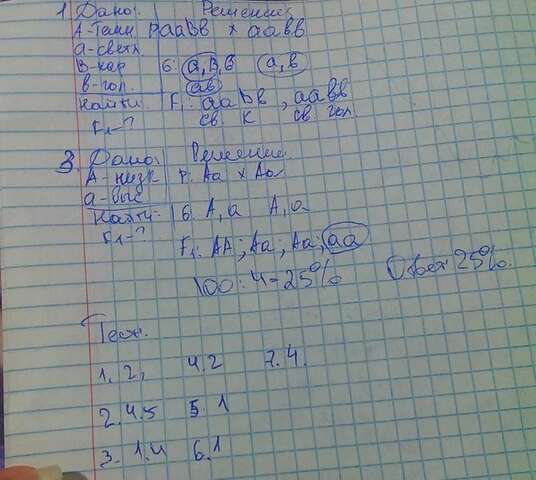 1. Дано: Решение:
А-темн Р ааВв х аавв
а-светл.
В-кар G: аВ, в а, в
в-гол. ав
Найти: F1: ааВв, аавв
F1-? св. к св гол
3. Дано: Решение:
А-низк Р: Аа х Аа
а-выс
Найти: G. А, а А, а
F1-?
F1: АА; Аа; Аа; аа
100:4=25% Ответ 25%.
Тест.
1. 2, 4.2 7.4.
2.4.5 5.1
3. 1.4 6.1